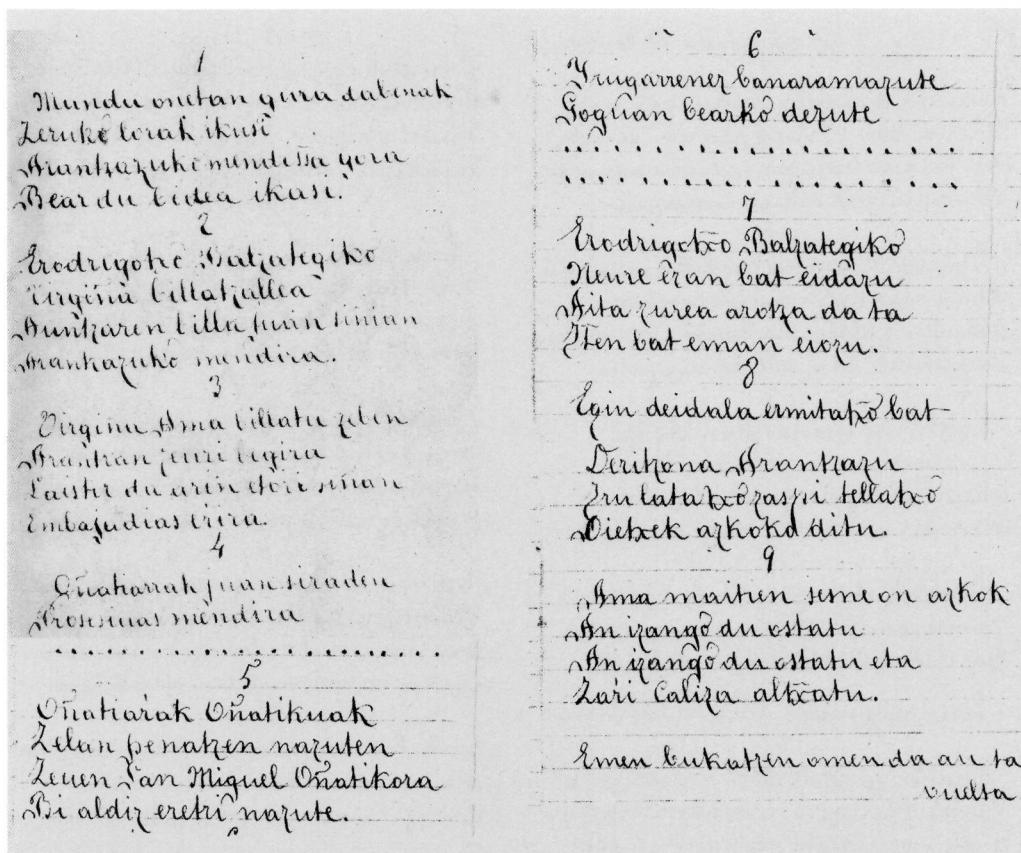 1
Mundu onetan gura dabenak
Zeruko lorak ikusi
Arantzazuko mendissa gora
Bear du bidea ikasi.
2
Erodrigotxo Balzategiko
Virgina billatzallea
Auntzaren billa juan sinian
Arantzazuko mendira.
3
Virgina Ama billatu zeben
Arantzan jarri begira
Laister du arin etori sinian
Embajadias erira.
4
Oñatiarrak juan siraden
Prosesinuas mendira
. . . . . . . . . . . . . . . . . . . .
5
Oñatiarak Oñatikuak
Zelan penatzen nazuten
Zeuen San Miguel Oñatikora
Bi aldiz eretri nazute.
6
Irugarrenez banaramazute
Goguan bearko dezute
. . . . . . . . . . . . . . . . . . .
. . . . . . . . . . . . . . . . . . .
7
Erodrigotxo Balzategiko
Neure eran bat eidazu
Aita zurea arotza da ta
Iten bat eman eiozu.
8
Egin deidala ermitatxo bat
Deritzona Arantzazu
Iru batatxo zaspi tellatxo
Dietxek azkoko ditu.
9
Ama maitien seme on azkok
An izango du ostatu
An izango du ostatu eta
Zari Caliza altxatu.
Emen bukatzen omen da au ta
vuelta